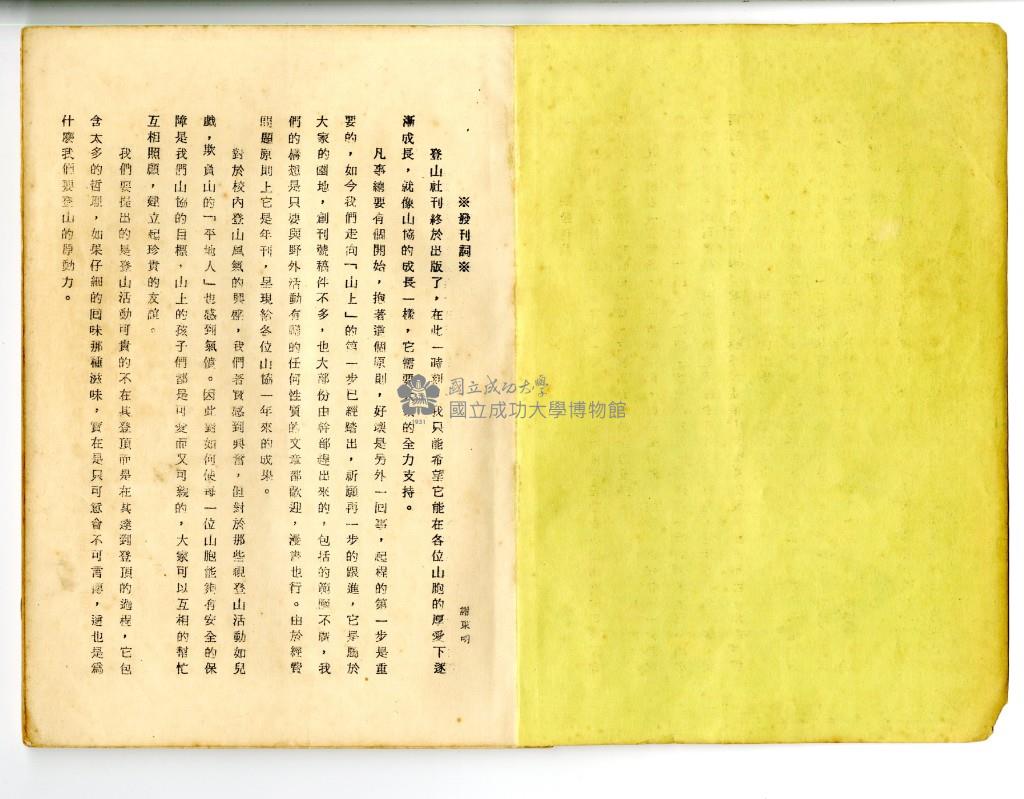 ※發刊詞※
謝東明
登山社刊終於出版了，在此一時刻，我只能希望它能在各位山胞的厚愛下逐
漸成長，就像山協的成長一樣，它需要的全力支持。
凡事總要有個開始，抱著這個原則，好壞是另外一回事，起程的第一步是重
要的，如今我們走向「山上」的第一步已經踏出，祈願再一步的跟進，它是屬於
大家的園地，創刊號稿件不多，也大部份由幹部趕出來的，包括的範圍不廣，我
們的構想是只要與野外活動有關的任何性質的文章都歡迎，漫畫也行。由於經費
問題原則上它是年刊，呈現給各位山協一年來的成果。
對於校內登山風氣的興盛，我們著實感到興奮，但對於那些視登山活動如兒
戲，欺負山的「平地人」也感到氣憤。因此對如何使每一位山胞能夠有安全的保
障是我們山協的目標，山上的孩子們都是可愛而又可親的，大家可以互相的幫忙
互相照顧，建立起珍貴的友誼。
我們要提出的是登山活動可貴的不在其登頂而是在其達到登頂的過程，它包
含太多的哲理，如果仔細的回味那種滋味，實在是只可意會不可言傳，這也是為
什麼我們要登山的原動力。
國立成功大學
國立成功大學博物館
1931